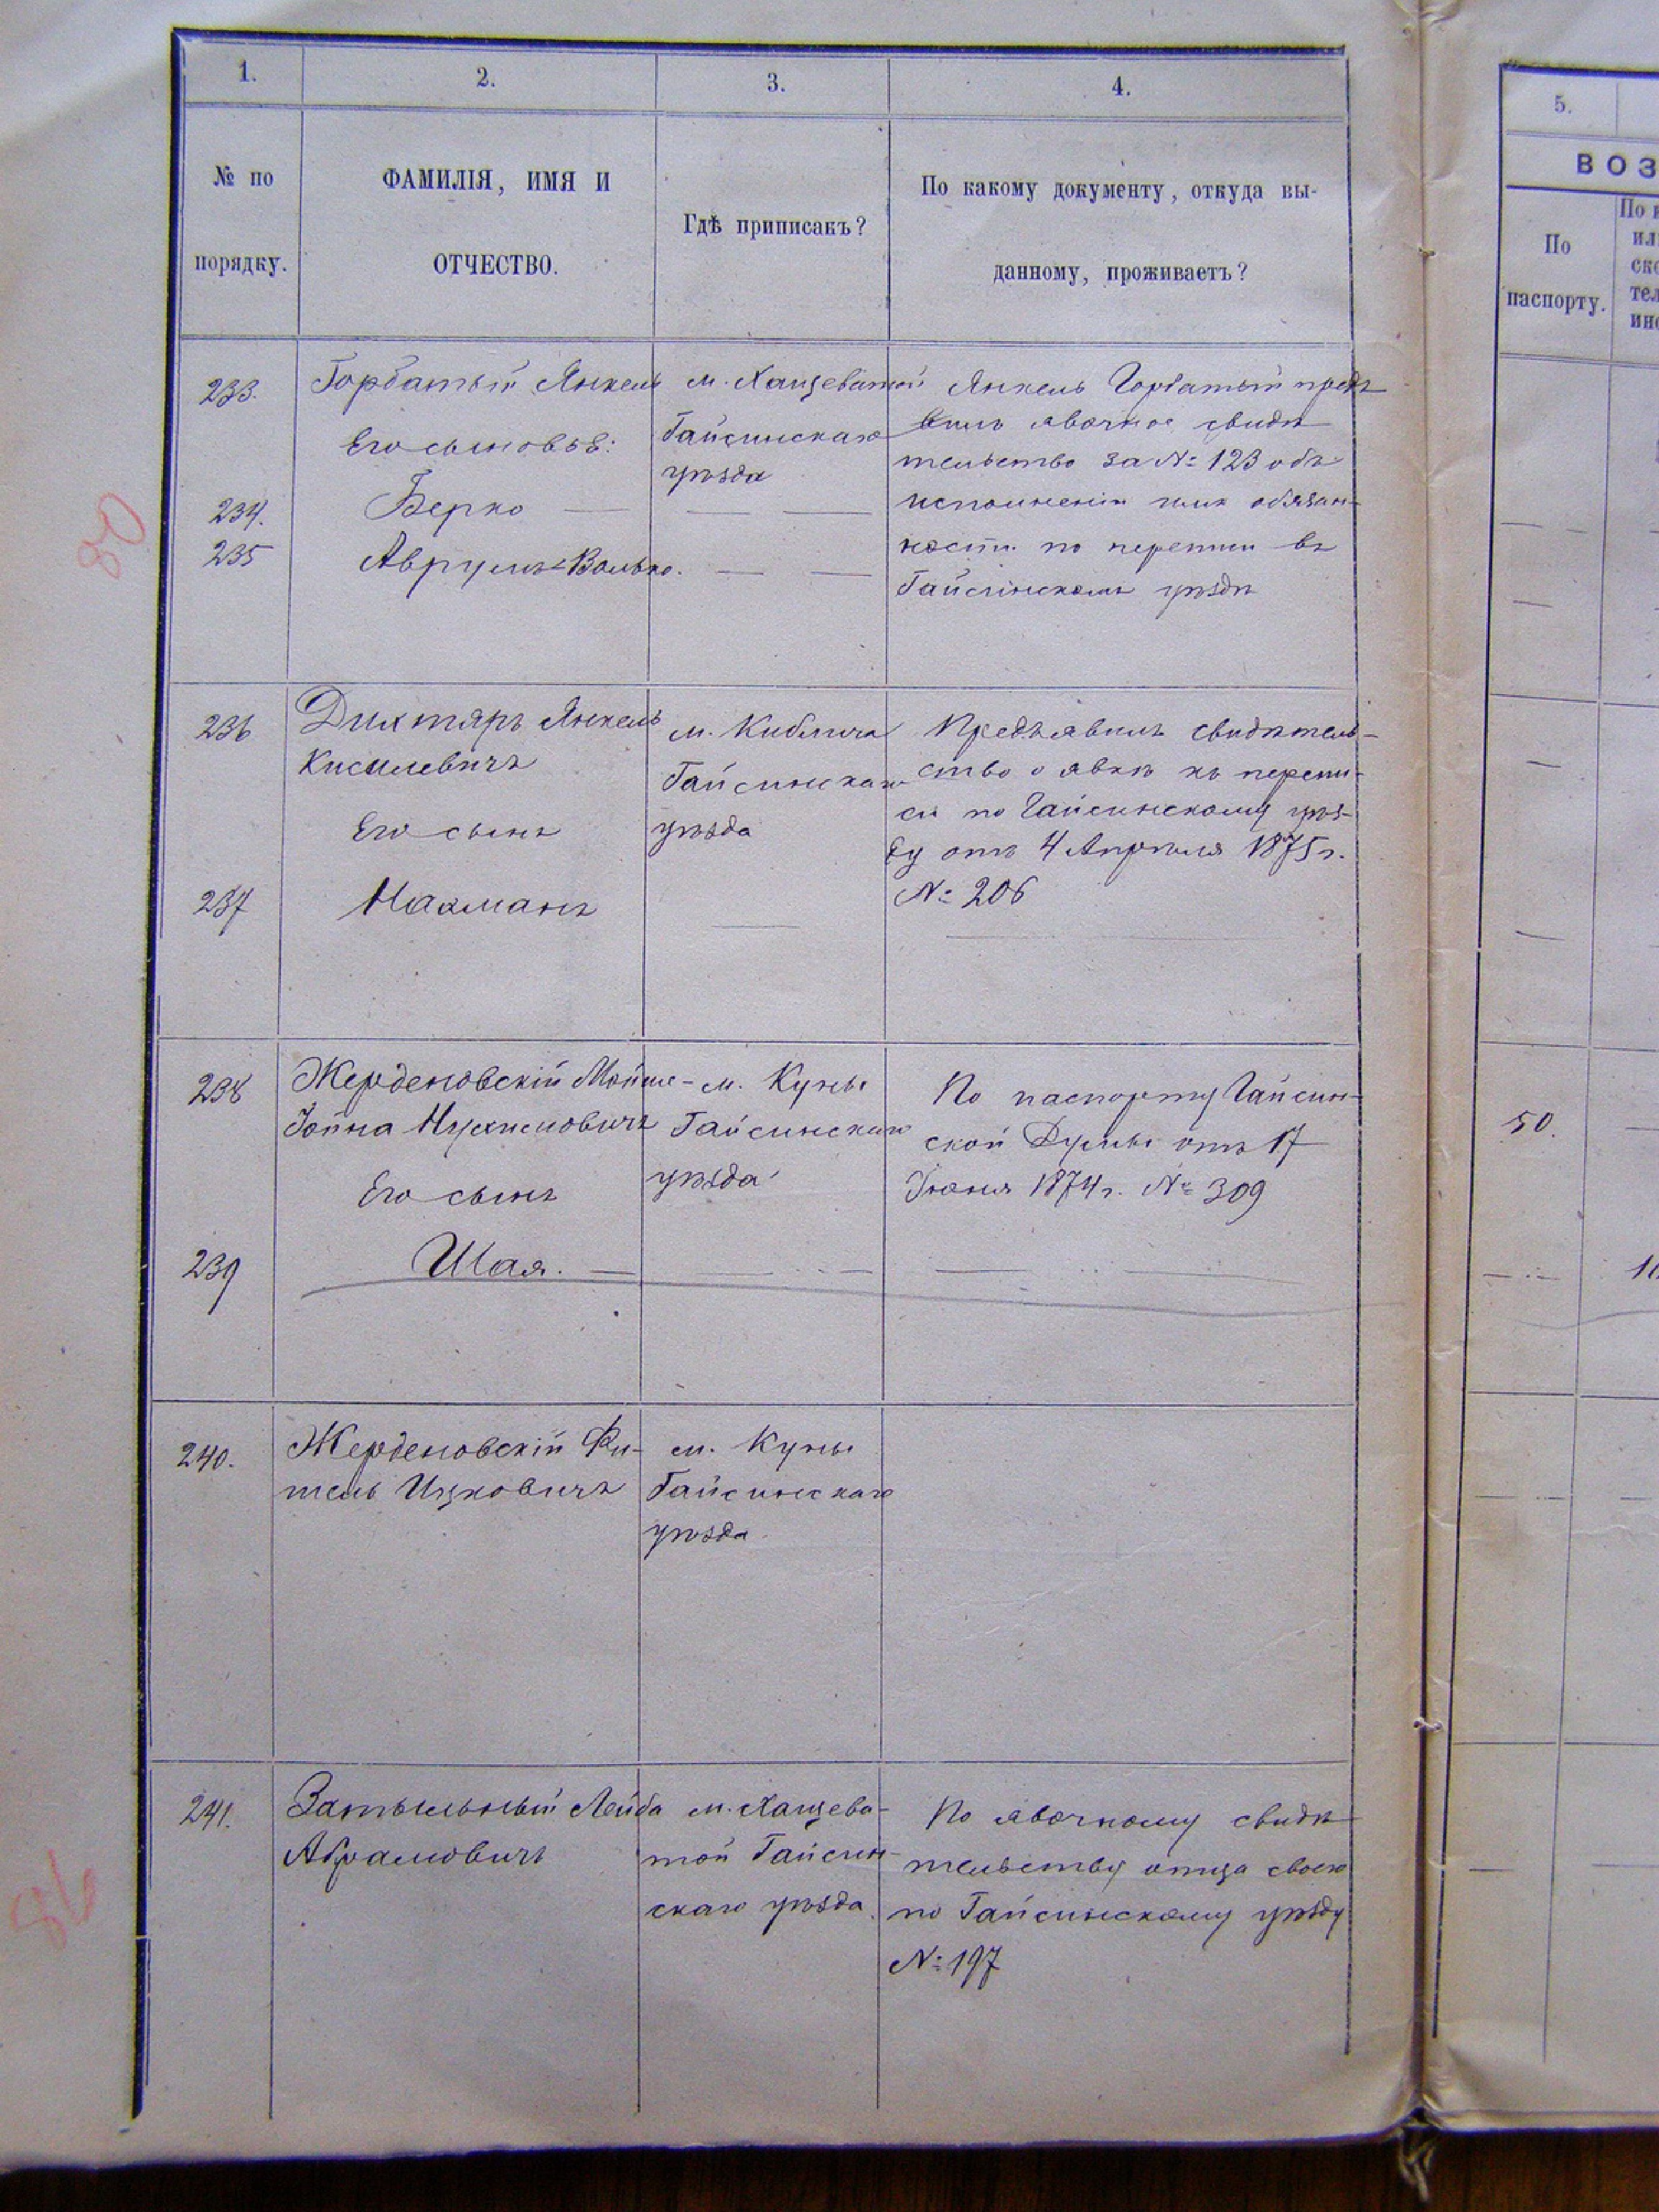 1. 2. 3. 4.
№ по порядку.
ФАМИЛІЯ, ИМЯ И
ОТЧЕСТВО.
Гдѣ приписакъ?
По какому документу, откуда вы-
данному, проживаетъ?
233. Горбатый Янкель
Его сыновья:
234. Берко
235 Аврумъ-Волько.
м. Хащеватой
Гайсинскаго
уѣзда
Янкель Горбатый предъ
вилъ явочное свидѣ
тельство за № 123 объ
исполненіи имъ обязан-
ности по переписи въ
Гайсинскомъ уѣздѣ
236 Дихтяръ Янкель
Кисилевичъ
Его сынъ
237 Нахманъ
м. Киблича
Гайсинскаго
уѣзда
Предъявилъ свидѣтель-
ство о явкѣ къ перепи-
си по Гайсинскому уѣз-
ду отъ 4 Апрѣля 1875 г.
№ 206
238 Жерденовскій Мойше-
Іойна Нухимовичъ
Его сынъ
239 Шая.
м. Куны
Гайсинскаго
уѣзда
По паспорту Гайсин-
ской Думы отъ 17
Іюня 1874 г. № 309
240. Жерденовскій Фи-
тель Ицковичъ
м. Куны
Гайсинскаго
уѣзда
241. Затыльный Лейба
Абрамовичъ
м. Хащева-
той Гайсин-
скаго уѣзда.
По явочному свидѣ
тельству отца своего
по Гайсинскому уѣзду
№ 197
80
86
5.
ВОЗ
По
паспорту.
По к
ил
ско
тел
ино
50.